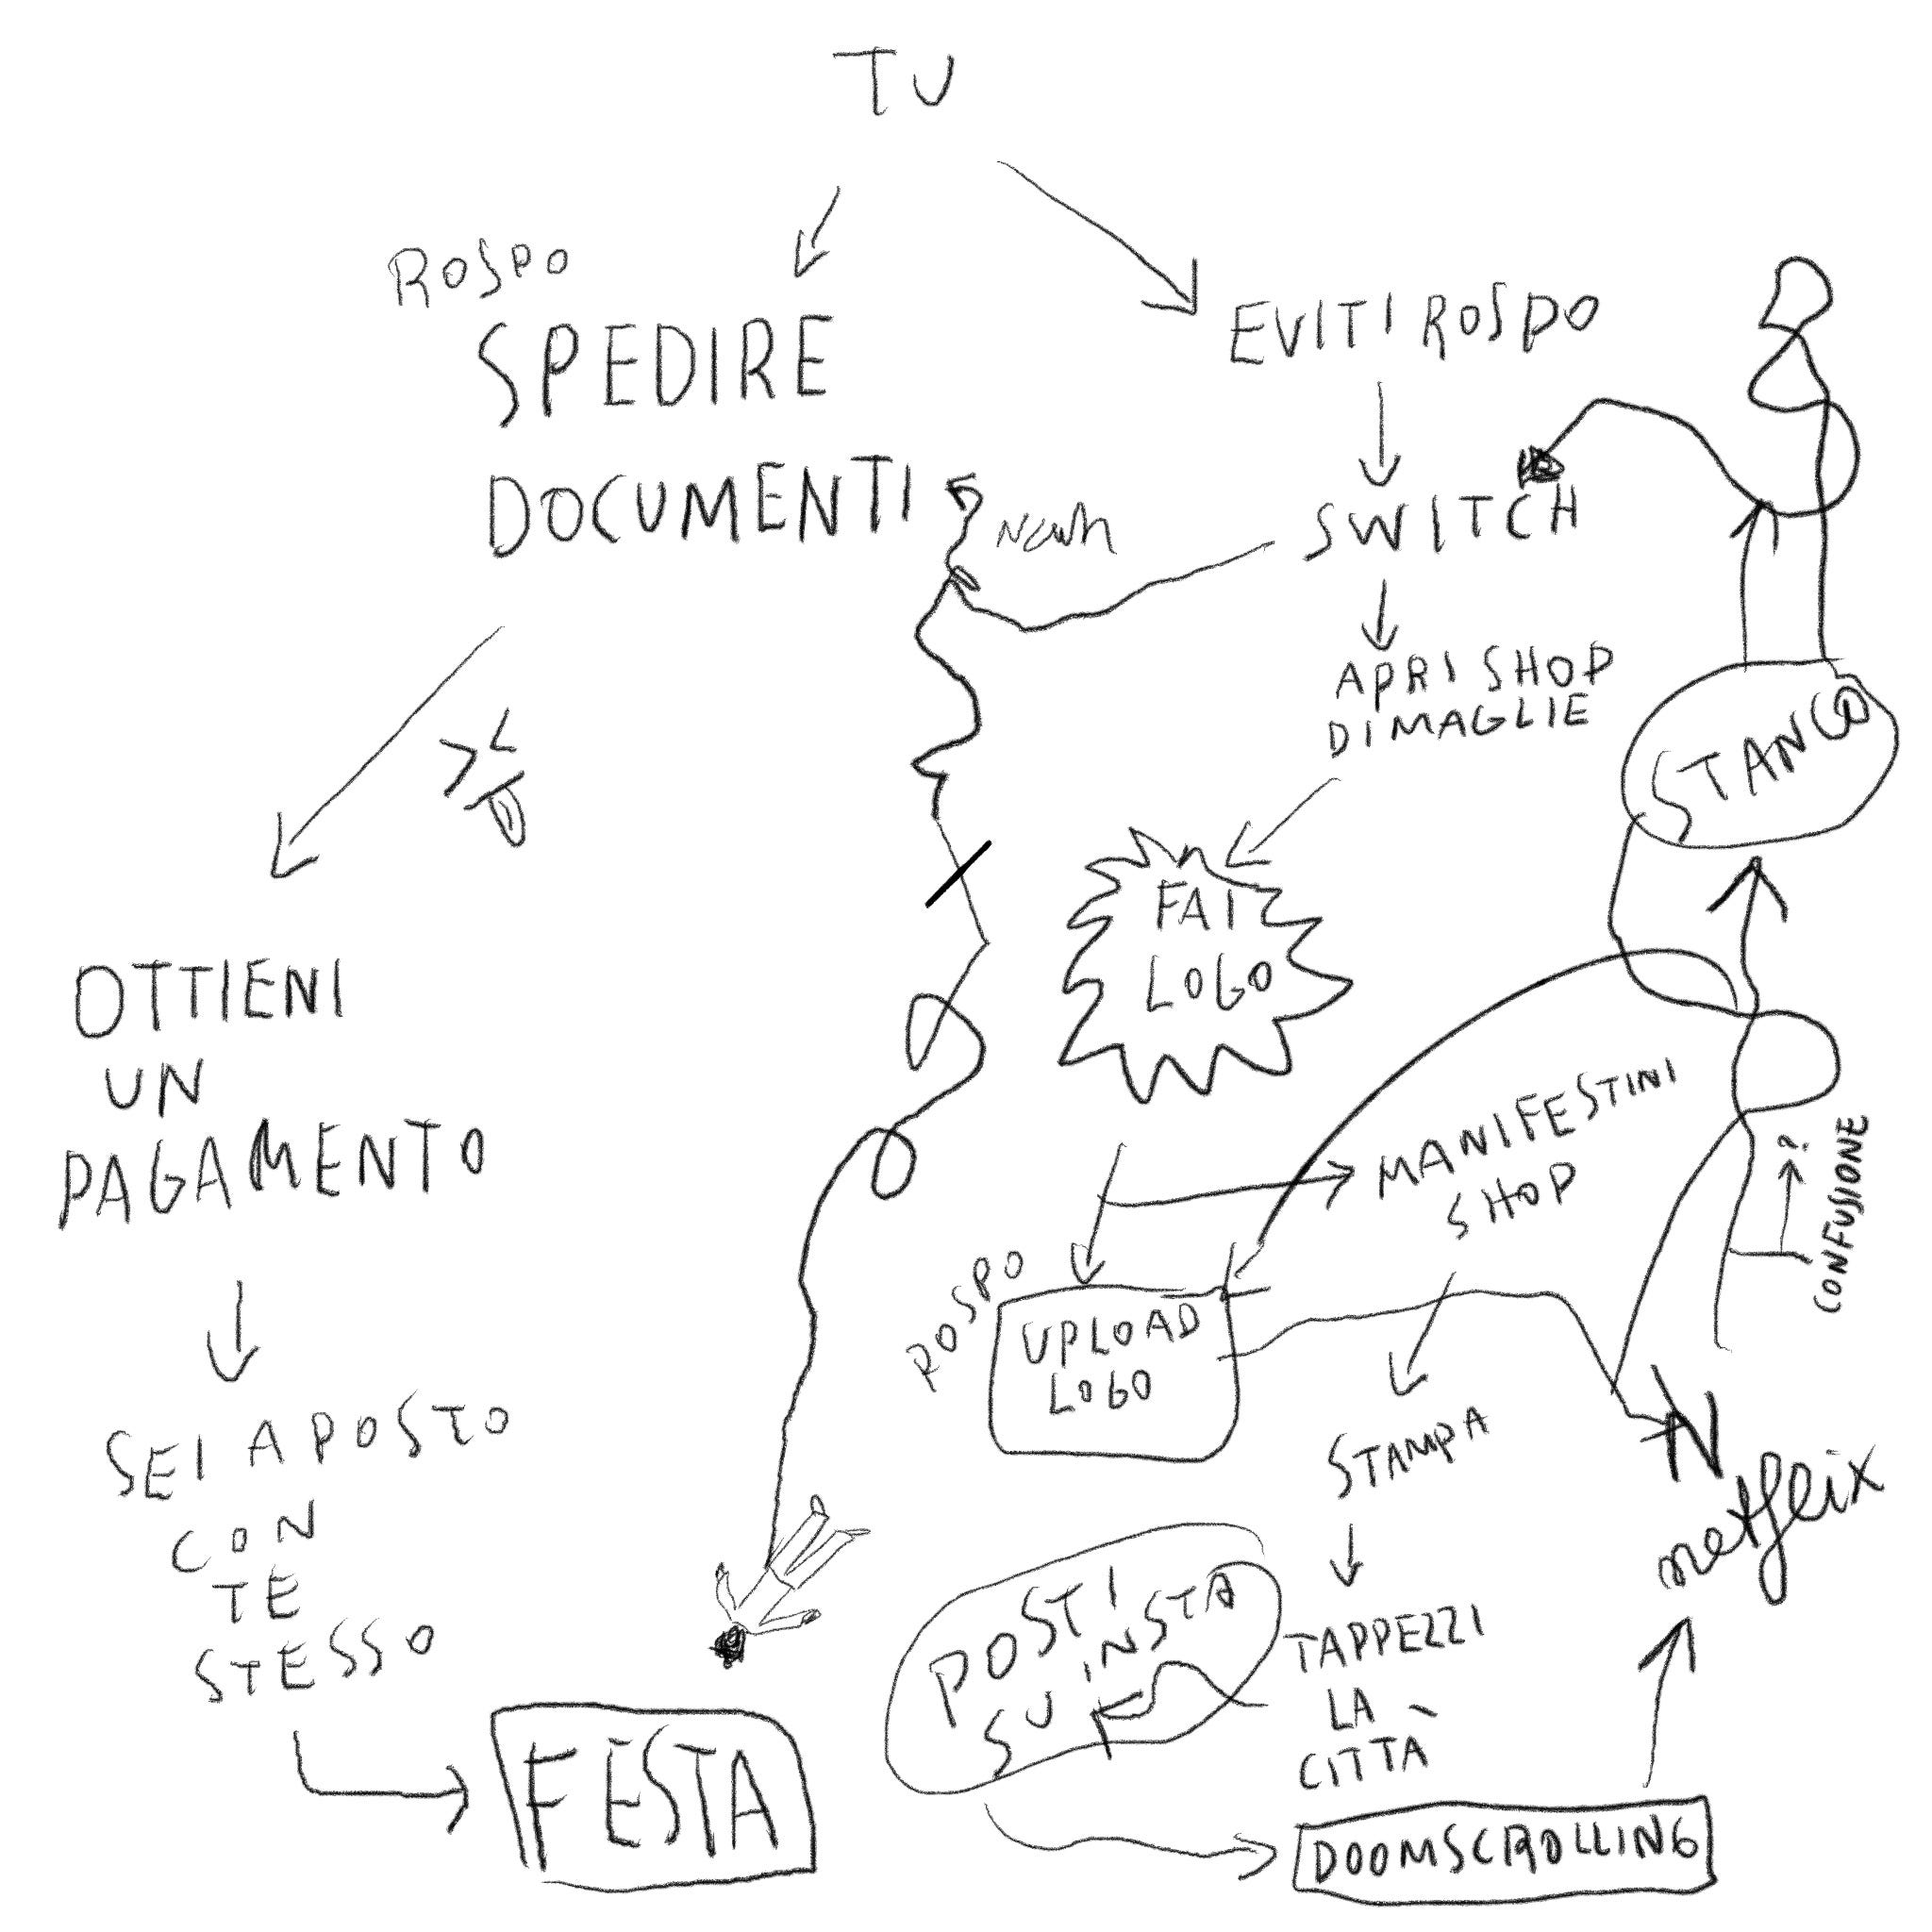 TU
ROSPO
SPEDIRE
DOCUMENTI
EVITI ROSPO
SWITCH
APRI SHOP
DI MAGLIE
FAI
LOGO
STANCO
OTTIENI
UN
PAGAMENTO
MANIFESTINI
SHOP
?
CONFUSIONE
ROSPO
UPLOAD
LOGO
STAMPA
N
netfleix
SEI A POSTO
CON
TE
STESSO
POSTI
SU INSTA
TAPPEZZI
LA
CITTÀ
FESTA
DOOMSCROLLING